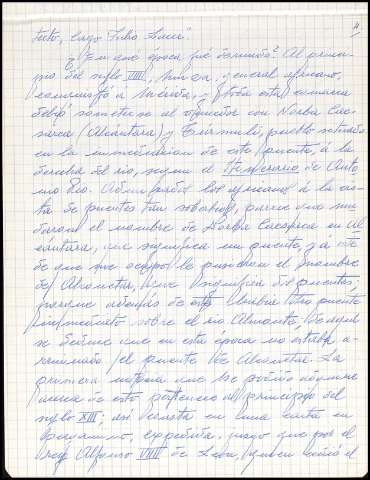 tecto, Cayo Julio Lacer".
¿En que época fué derruido? Al princi-
pio del siglo VIII, Muza, general africano,
conquistó a Mérida, y toda esta comarca
debió someterse al vencedor con Norba Cae-
sarea (Alcántara) y Turmuli, pueblo situado
en la inmediación de este puente, á la
derecha del río, según el Itinerario de Anto-
nino Pío. Admirados los africanos á la vis-
ta de puentes tan soberbios, parece que mu-
daron el nombre de Norba Caesarea en Al-
cántara, que significa un puente, y á éste
de que me ocupo le pusieron el nombre
de Alconetar, que significa dos puentes,
porque además de este hubiera otro puente
inmediato sobre el río Almonte, de aquí
se deduce que en esta época no estaba a-
rruinado el puente de Alconetar. La
primera noticia que he podido adquirir
acerca de esto pertenece al principio del
siglo XIII; así consta en una carta en
pergamino, expedida, juzgo que por el
rey Alfonso VIII de León, quien cedió el